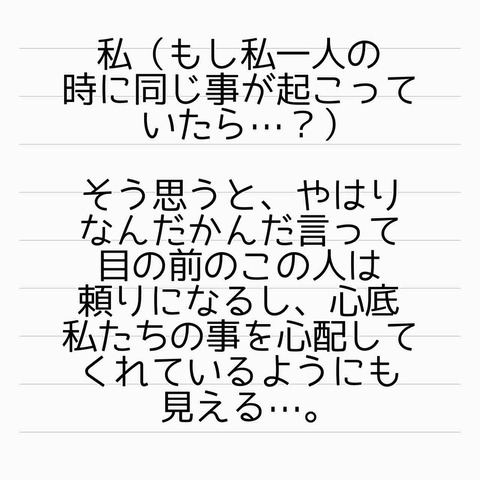 私（もし私一人の
時に同じ事が起こって
いたら…？）
そう思うと、やはり
なんだかんだ言って
目の前のこの人は
頼りになるし、心底
私たちの事を心配して
くれているようにも
見える…。